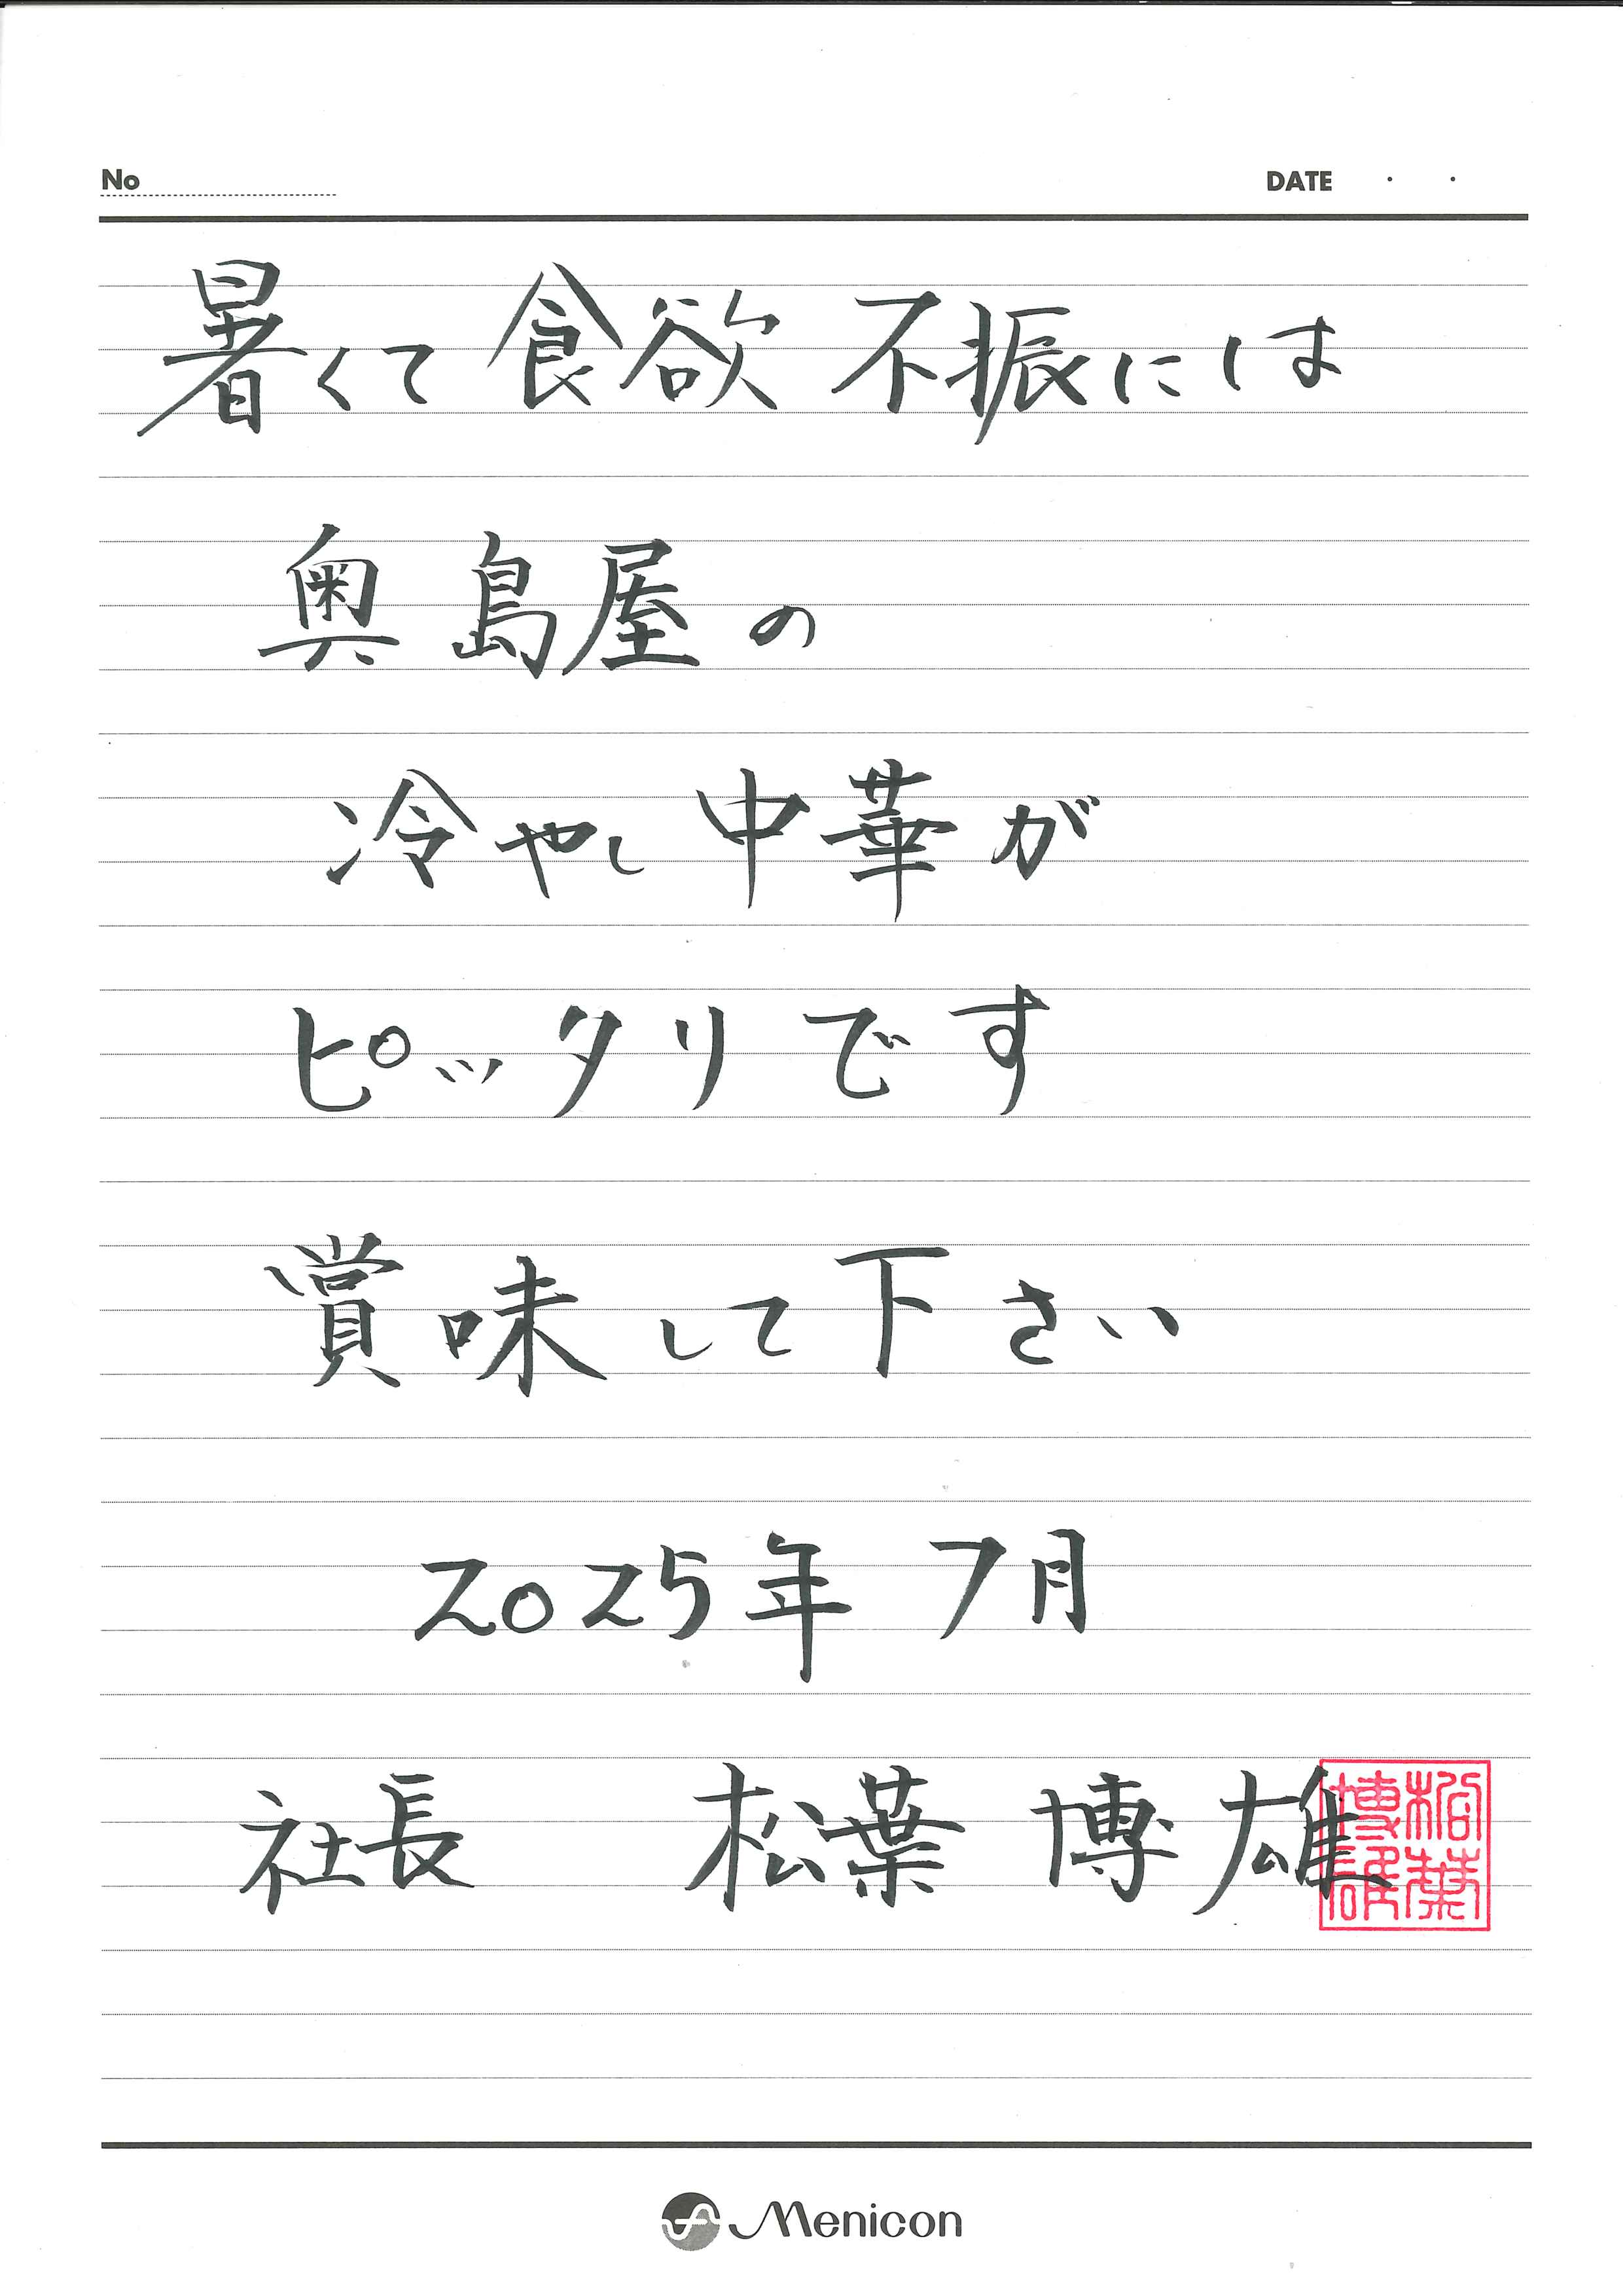 No
DATE ・ ・
暑くて食欲不振には
奥島屋の
冷やし中華が
ピッタリです
賞味して下さい
2025年7月
社長 松葉博雄
松葉
博雄
Menicon